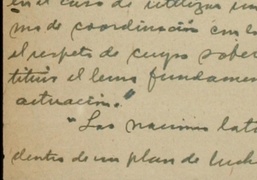 en el caso de utilizar un
mo de coordinación con lo
el respeto de cuya sober
tituir el lema fundamen
actuación."
"Las naciones lati
dentro de un plan de luch